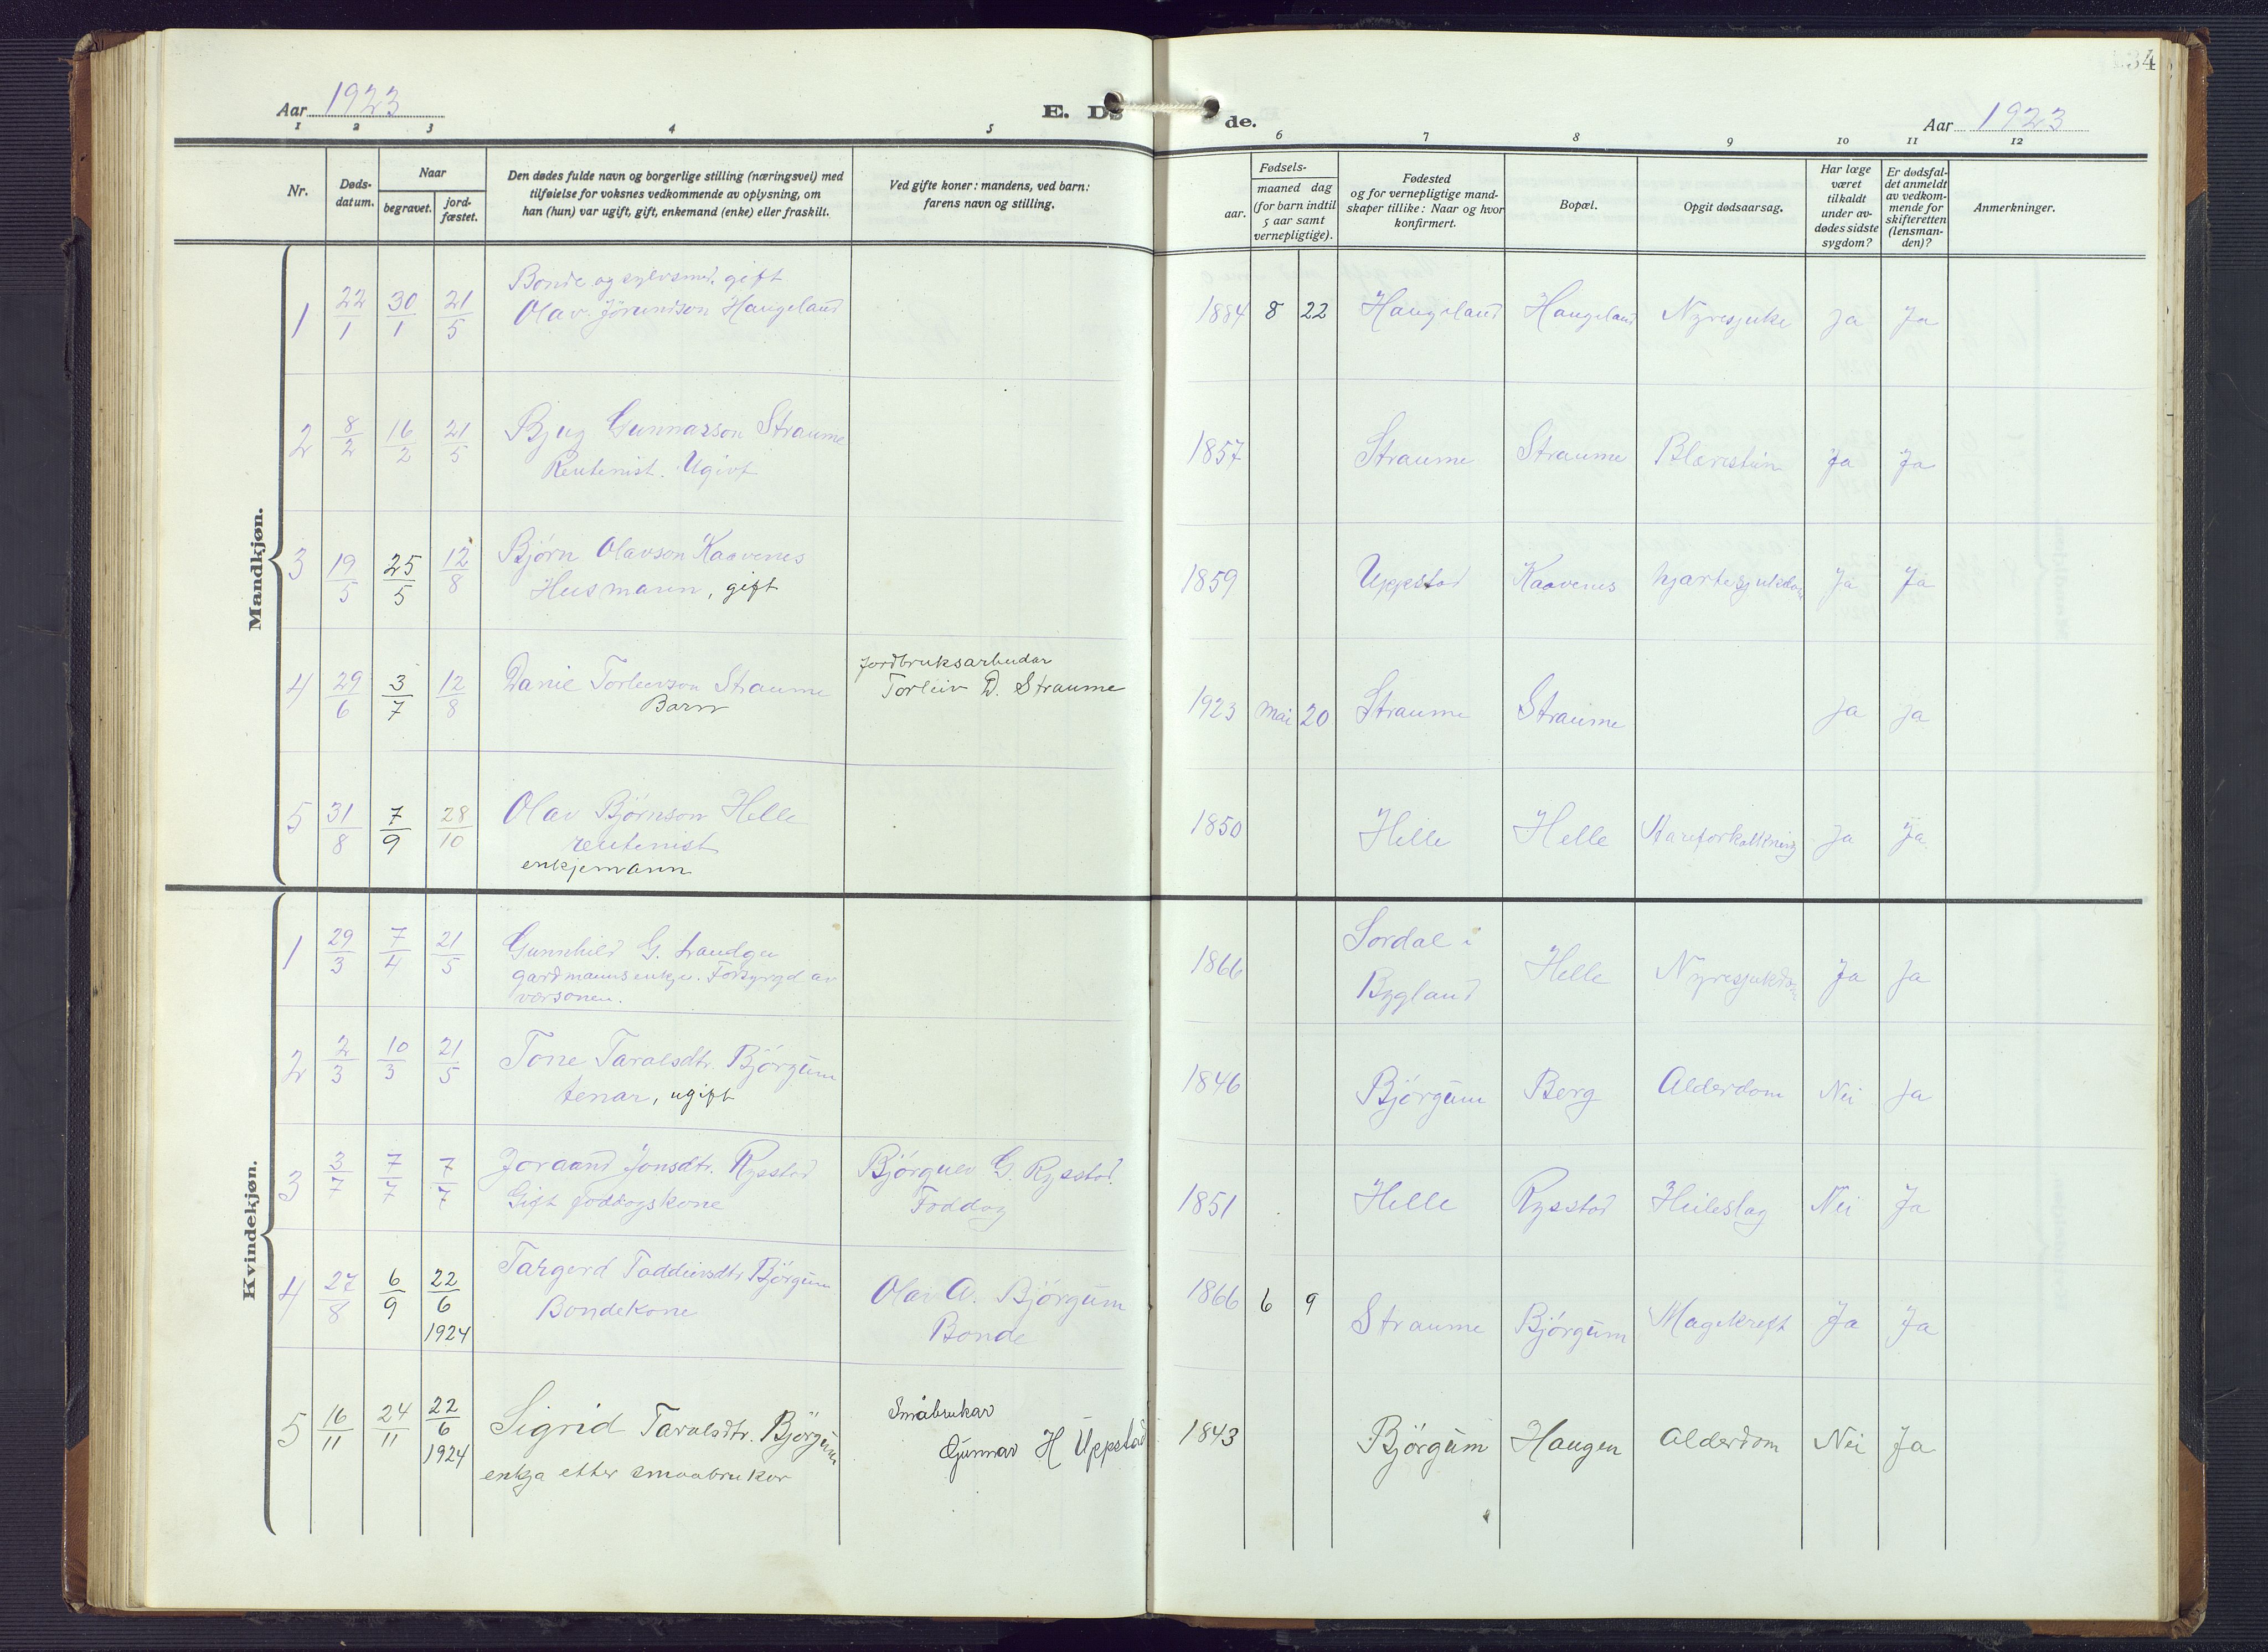 Aar 1923
E. Dø
de.
Aar 1923
34
1 2 3 4 5 6 7 8 9 10 11 12
Nr.
Døds-
datum.
Naar
begravet.
jord-
fæstet.
Den dødes fulde navn og borgerlige stilling (næringsvei) med
tilføielse for voksnes vedkommende av oplysning, om
han (hun) var ugift, gift, enkemand (enke) eller fraskilt.
Ved gifte koner: mandens, ved barn:
farens navn og stilling.
Fødsels-
aar.
maaned dag
(for barn indtil
5 aar samt
vernepligtige).
Fødested
og for vernepligtige mand-
skaper tillike: Naar og hvor
konfirmert.
Bopæl.
Opgit dødsaarsag.
Har læge
været
tilkaldt
under av-
dødes sidste
sygdom?
Er dødsfal-
det anmeldt
av vedkom-
mende for
skifteretten
(lensman-
den)?
Anmerkninger.
Mandkjøn.
1 22/1 30/1 21/5 Bonde og sylvsmed, gift
Olav Jørundson Haugeland
1884 8 22 Haugeland Haugeland Nyresjuke Ja Ja
2 8/2 16/2 21/5 Bjug Gunnarson Straume
Rentenist. Ugivt
1857 Straume Straume Blærestein Ja Ja
3 19/5 25/5 12/8 Bjørn Olavson Kaavenes
Husmann, gift
1859 Uppstad Kaavenes hjartesjukdom Ja Ja
4 29/6 3/7 12/8 Daniel Torleivson Straume
Barn
Jordbruksarbeidar
Torleiv D. Straume
1923 Mai 20 Straume Straume Ja Ja
5 31/8 7/9 28/10 Olav Bjørnson Helle
rentenist
enkjemann
1850 Helle Helle Aareforkalkning Ja Ja
Kvindekjøn.
1 29/3 7/4 21/5 Gunnhild G.
gardmannsenkje. Forsyrgd av
versonen.
1866 Sordal i
Bygland
Helle Nyresjukdom Ja Ja
2 2/3 10/3 21/5 Tone Taralsdtr. Bjørgum
tenar, ugift
1846 Bjørgum Berg Alderdom Nei Ja
3 3/7 7/7 7/7 Joraand Jonsdtr. Rysstad
Gift foddogskone
Bjørguv G. Rysstad.
Foddog
1851 Helle Rysstad Heileslag Nei Ja
4 27/8 6/9 22/6
1924
Targerd Taddeivsdtr Bjørgum
Bondekone
Olav A. Bjørgum
Bonde
1866 6 9 Straume Bjørgum Magekreft Ja Ja
5 16/11 24/11 22/6
1924
Sigrid Taralsdtr. Bjørgum
enkja etter smaabrukar
Småbrukar
Gunnar H Uppstad
1843 Bjørgum Haugen Alderdom Nei Ja